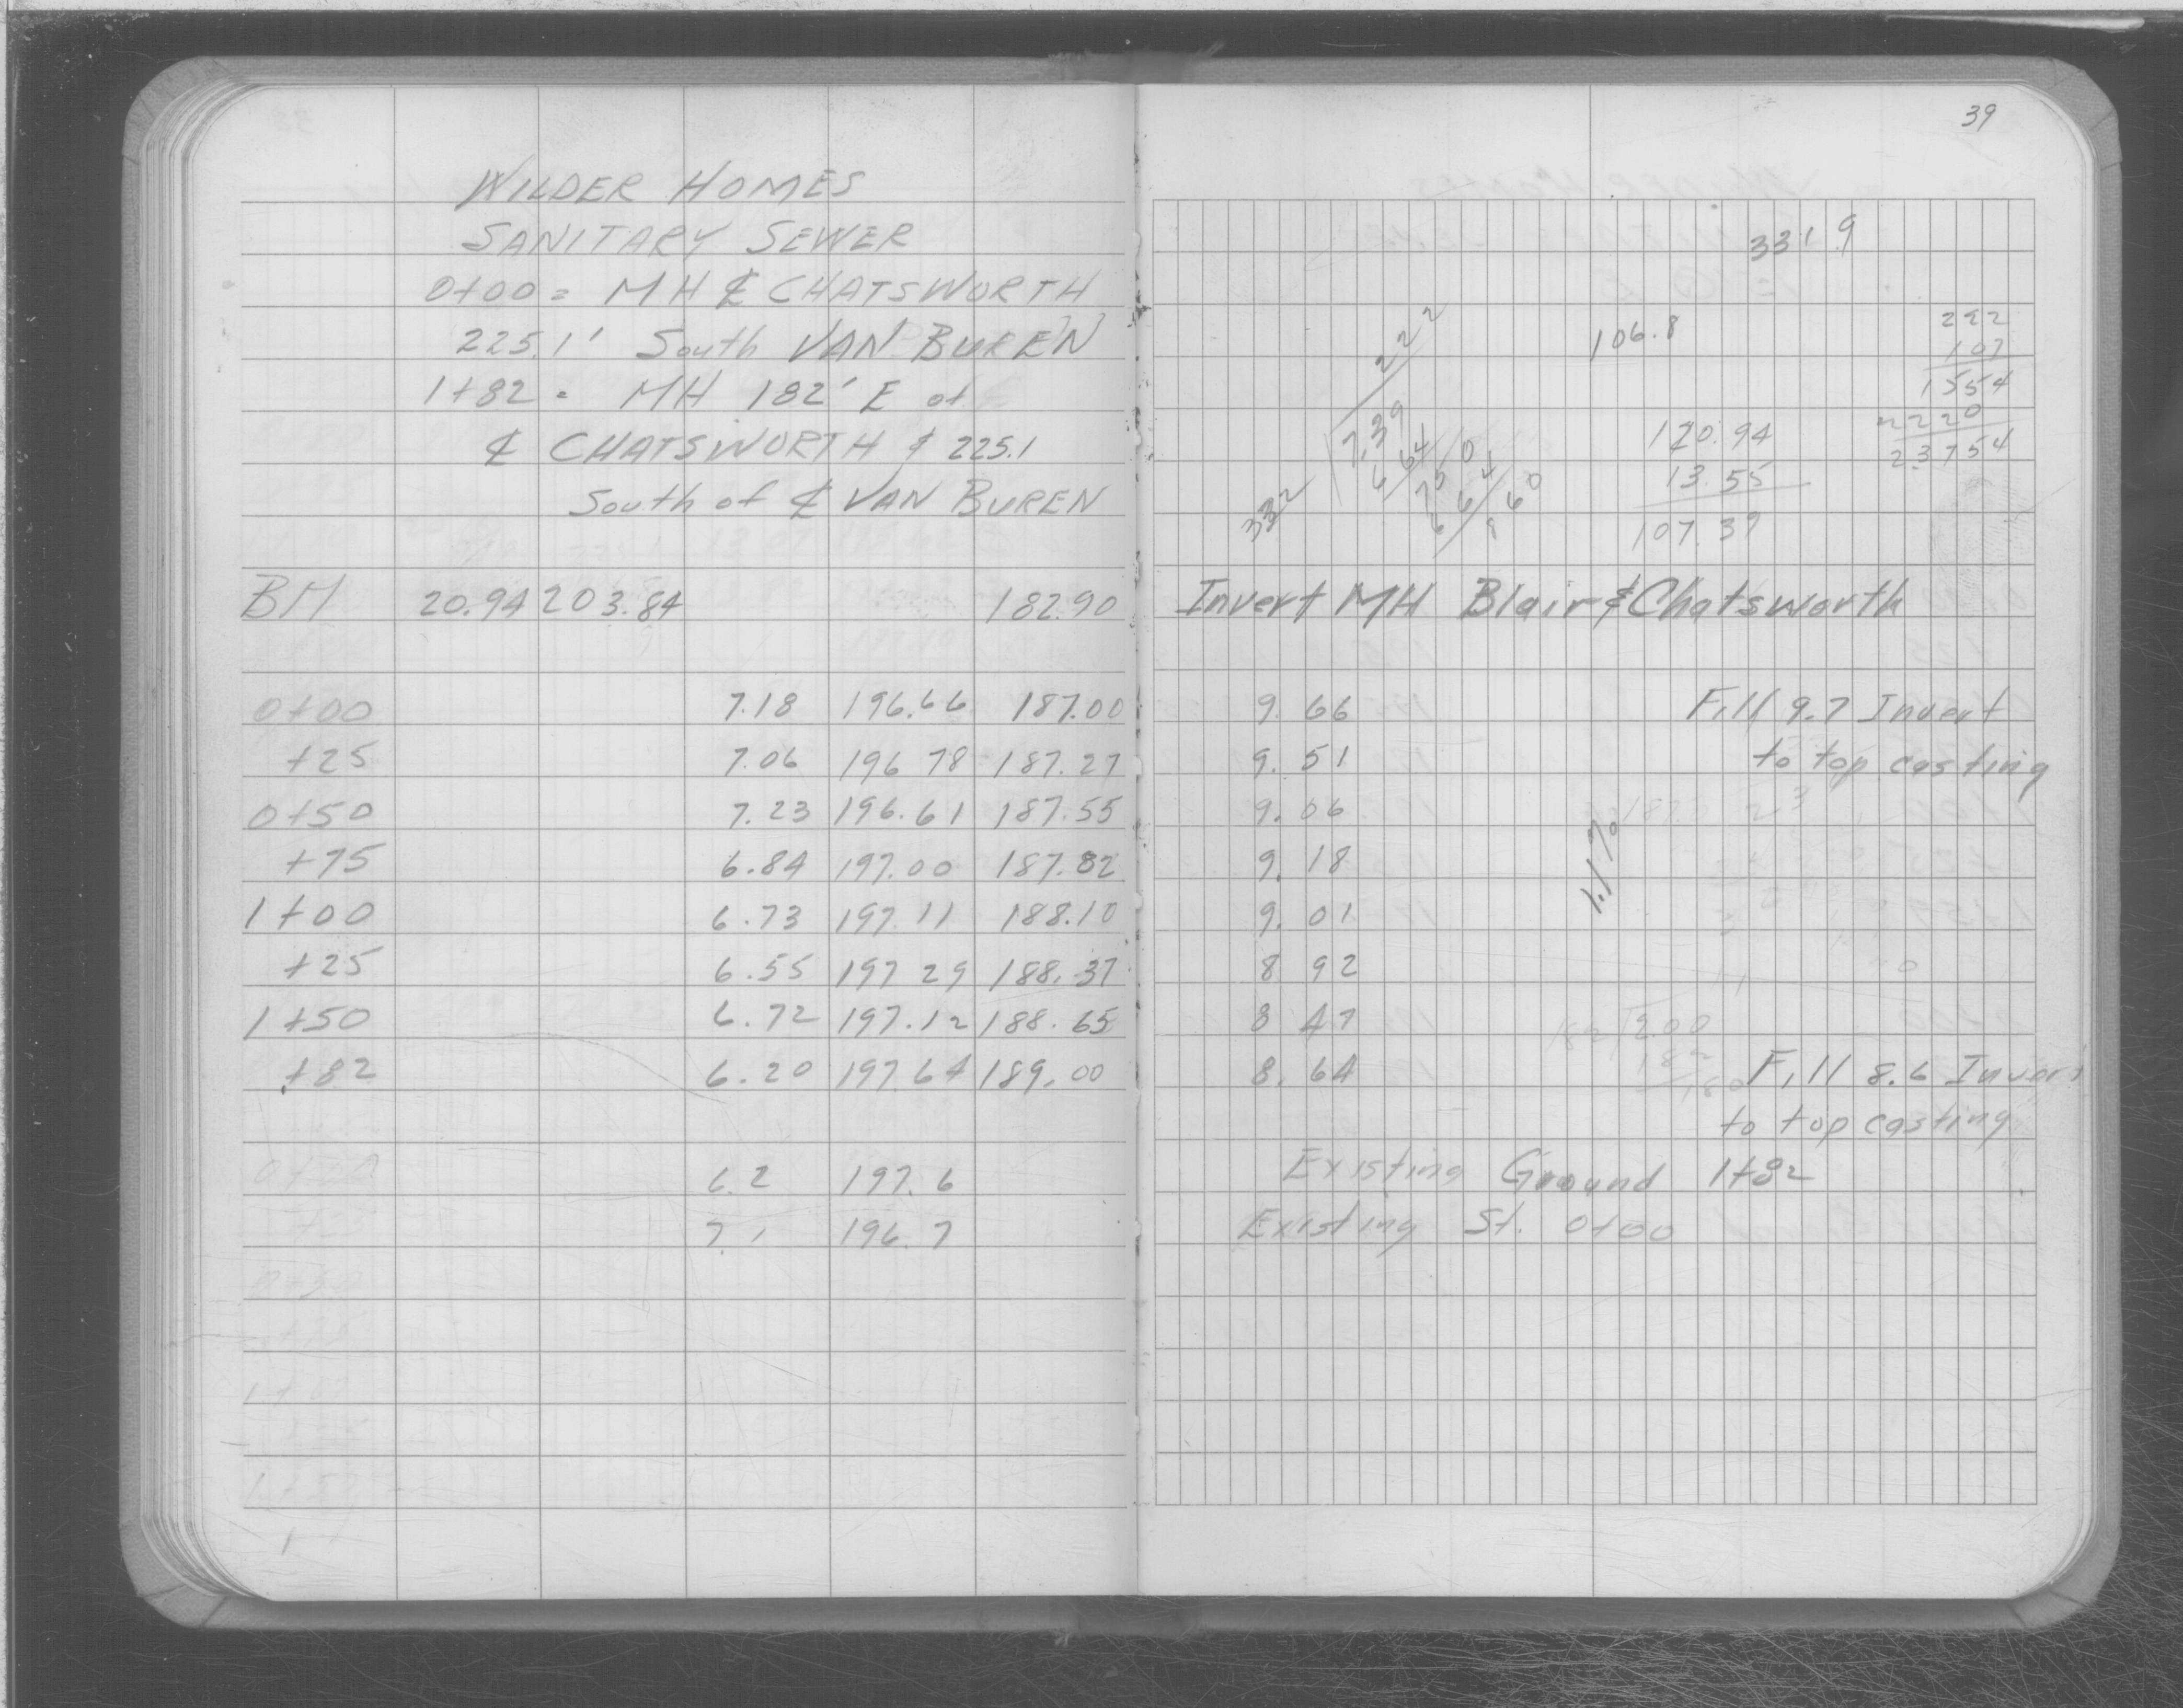 39
WILDER HOMES
SANITARY SEWER
0+00 = MH ℄ CHATSWORTH
225.1' South VAN BUREN
1+82 = MH 182' E of
℄ CHATSWORTH & 225.1
South of ℄ VAN BUREN
BM 20.94 203.84 182.90
0+00 7.18 196.66 187.00
+25 7.06 196 78 187.27
0+50 7.23 196.61 187.55
+75 6.84 197.00 187.82
1+00 6.73 197.11 188.10
+25 6.55 197 29 188.37
1+50 6.72 197.12 188.65
+82 6.20 197.64 189.00
6.2 197.6
7.1 196.7
331.9
106.8
222
107
1554
2220
23754
222
7.39
6 64
750
664
860
332
120.94
13.55
107.39
Invert MH Blair & Chatsworth
9.66 Fill 9.7 Invert
9.51 to top casting
9.06
9.18
1.1%
9.01
8 92
8 47
182 200
182
180
8.64 Fill 8.6 Invert
to top casting
Existing Ground 1+82
Existing St. 0+00